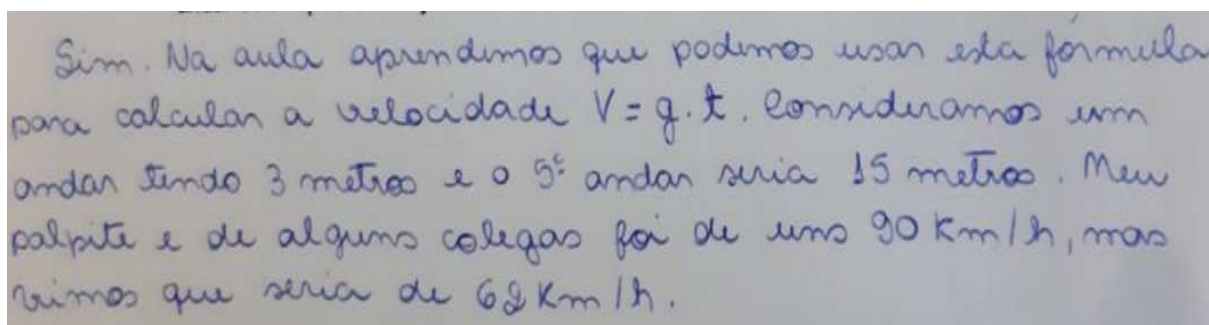 Sim. Na aula aprendemos que podemos usar esta fórmula
para calcular a velocidade V = g.t. Consideramos um
andar tendo 3 metros e o 5º andar seria 15 metros. Meu
palpite e de alguns colegas foi de uns 90 Km/h, mas
vimos que seria de 62 Km/h.